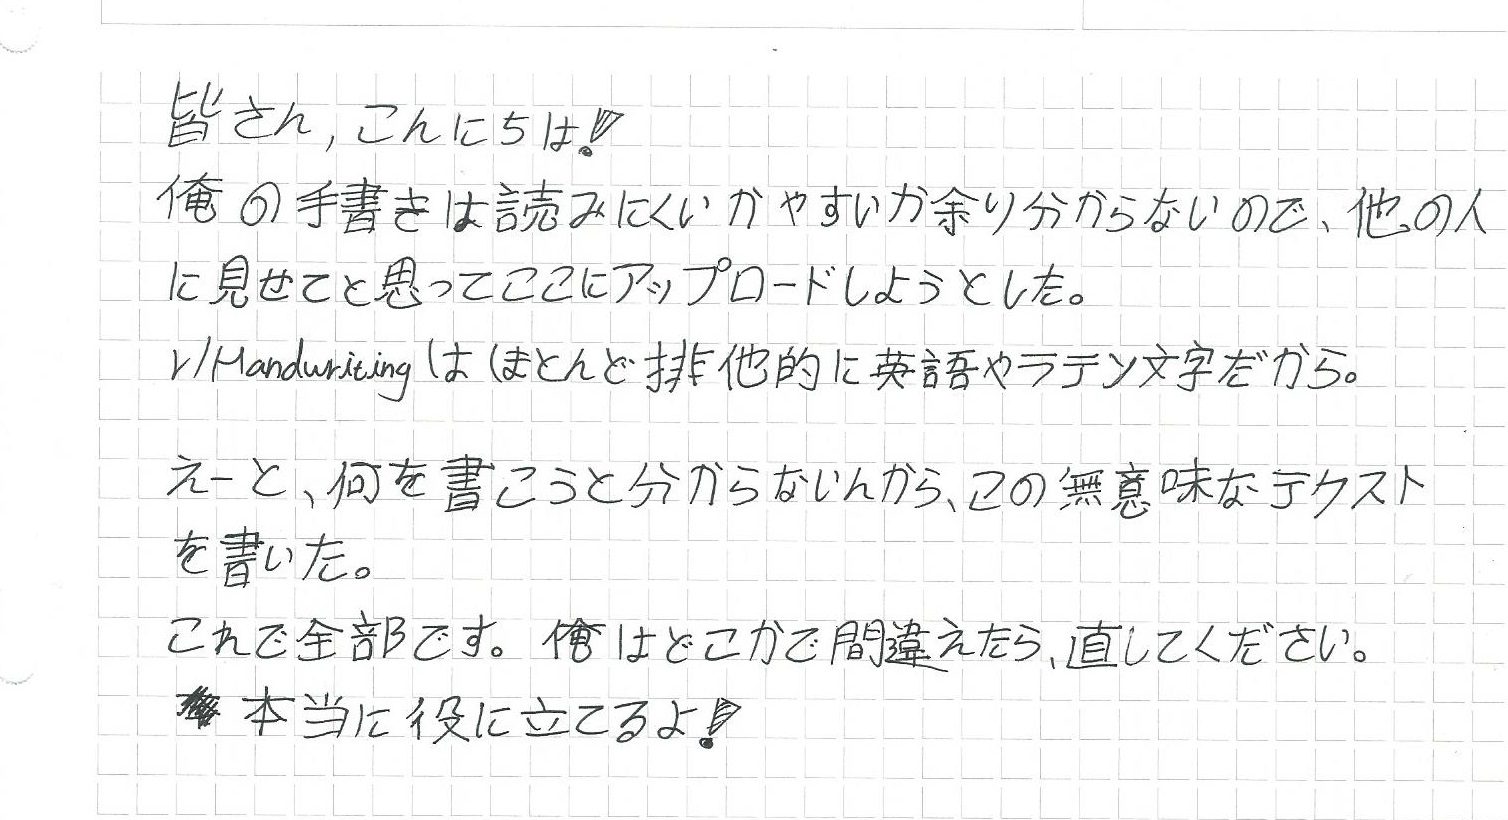 皆さん,こんにちは!
俺の手書きは読みにくいかやすいか余り分からないので、他の人
に見せてと思ってここにアップロードしようとした。
r/Handwritingはほとんど排他的に英語やラテン文字だから。
えーと、何を書こうと分からないんから、この無意味なテクスト
を書いた。
これで全部です。俺はどこかで間違えたら、直してください。
本当に役に立てるよ!